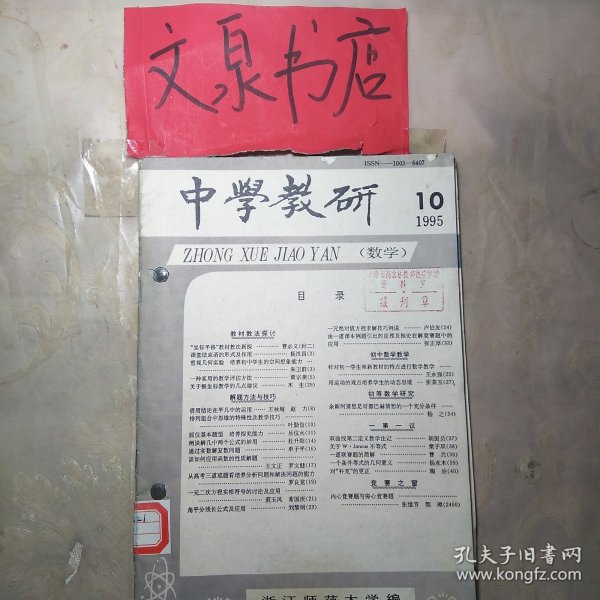 文泉书店
ISSN——1003-6407
中學教研
10
1995
ZHONG XUE JIAO YAN
(数学)
报刊章
目 录
教材教法探讨
"坐标平移"教材教法新探 曹必文(封二)
课堂结束语的形式及作用 杨汛昌(2)
重视几何实验 培养初中学生的空间想象能力
朱卫群(3)
一种实用的教学评估方法 黄宗美(5)
关于概念标教学的几点建议 木生(29)
解题方法与技巧
借用结论在平几中的运用 王秋海 赵力(8)
排列组合中思维的特殊性及教学技巧
叶勤俭(10)
抓住基本题型 培养探究能力 吕位火(11)
例谈解几中两个公式的妙用 杜升阳(14)
通过实数解复数问题 单子平(15)
谈如何应用函数的性质解题
王文正 罗文鲢(17)
从高考三道难题看培养分析问题和解决问题的能力
罗良龙(19)
一元二次方程实根符号的讨论及应用
蔡玉凤 常国庆(21)
角平分线长公式及应用 刘黎明(23)
一元绝对值方程求解技巧例说 卢伯友(24)
由一道课本例题引出的定理及推论在解竞赛题中的
应用 侯正厚(33)
初中数学教学
针对初一学生和新教材的特点进行数学教学
王永强(25)
用运动的观点培养学生的动态思维 张荐玉(27)
初等数学研究
余新河猜想是哥德巴赫猜想的一个充分条件
杨之(34)
一事一议
双曲线第二定义教学注记 胡盟员(37)
关于W·Janous不等式 蒙子双(38)
一道联赛题的简解 曹兵(39)
一个条件等式的几何意义 杨永木(39)
对"补充"的更正 陶冶(40)
竞赛之窗
内心竞赛题与旁心竞赛题
张继节 郭璋(2400)
浙江师范大学编
孔夫子旧书网
www.kongfz.com